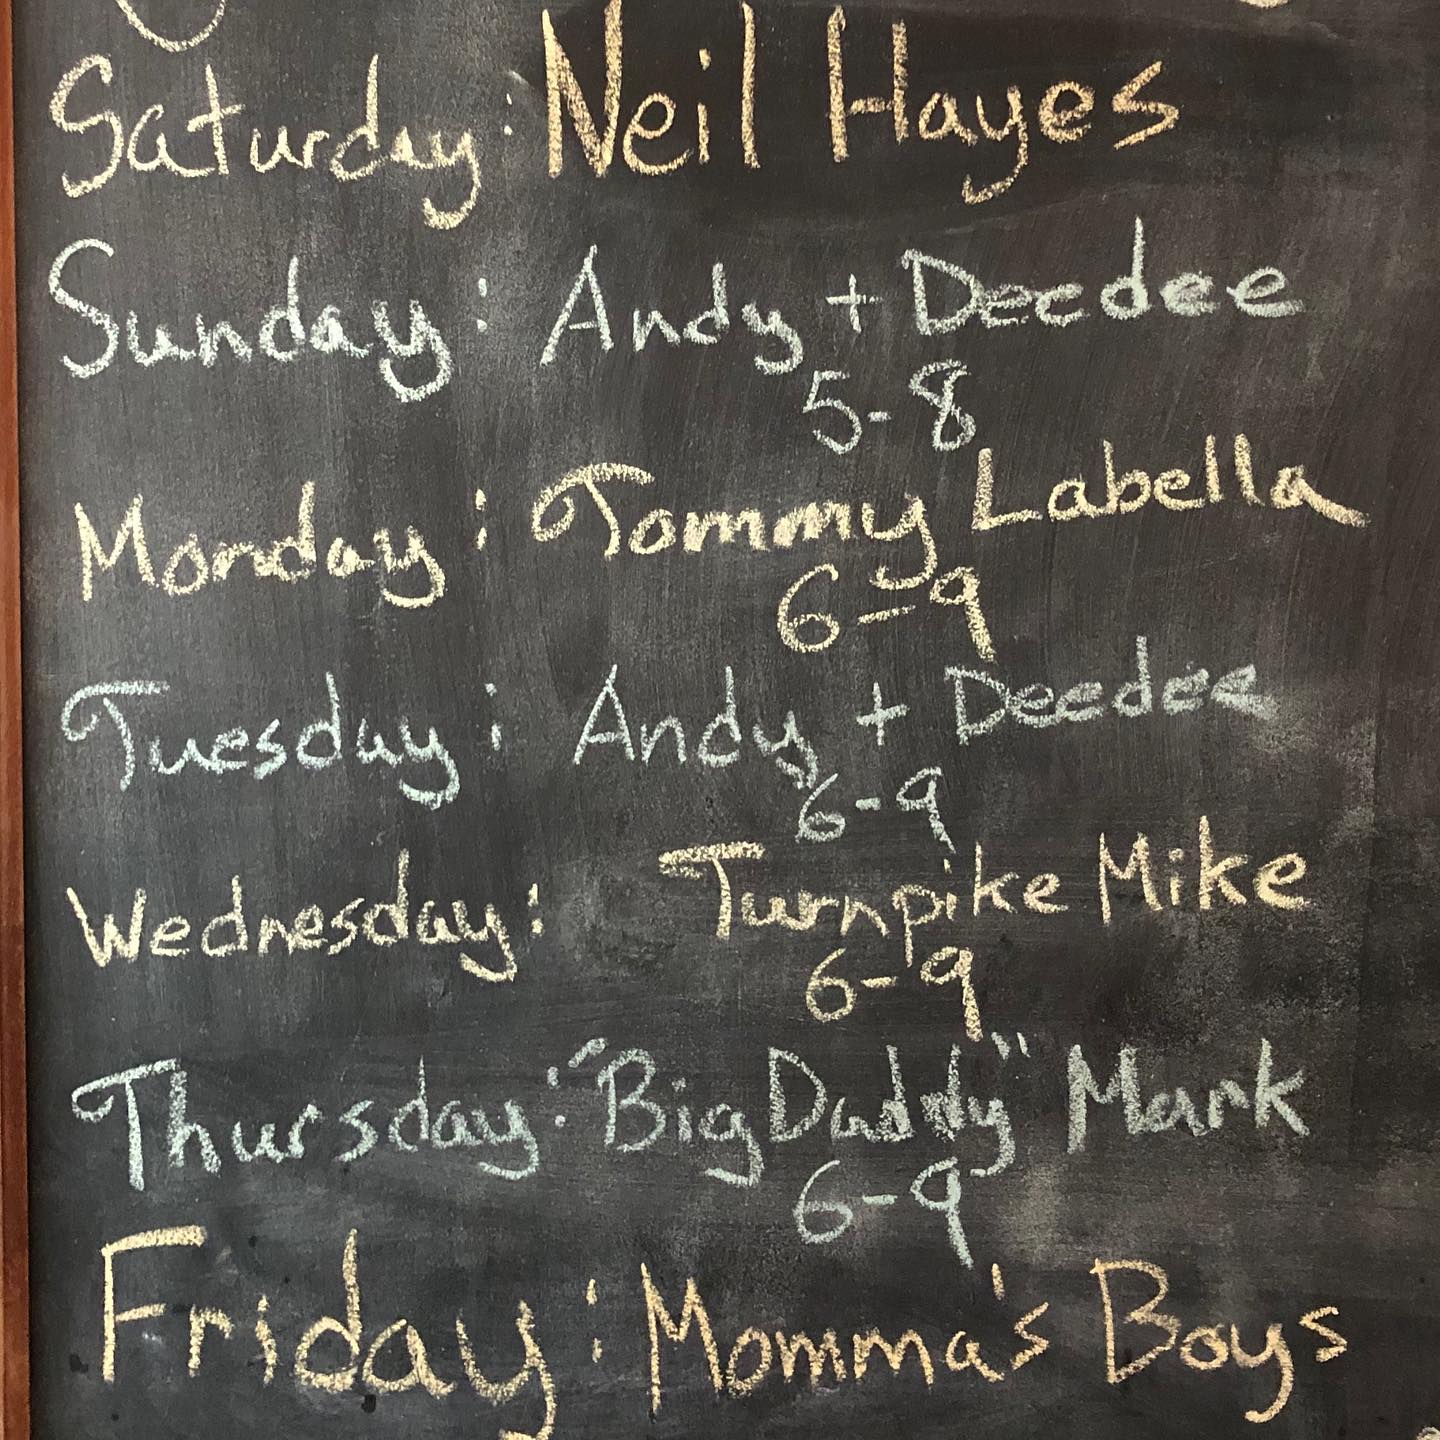 Saturday: Neil Hayes
Sunday: Andy + Deedee
5-8
Monday: Tommy Labella
6-9
Tuesday: Andy + Deedee
6-9
Wednesday: Turnpike Mike
6-9
Thursday: "Big Daddy" Mark
6-9
Friday: Momma's Boys